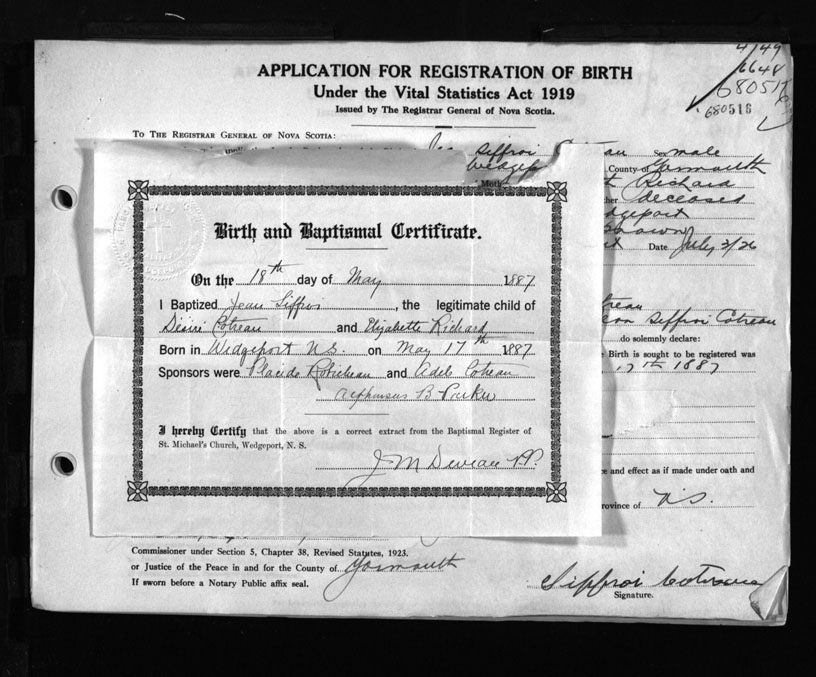 4/49
6648
680517
680518
APPLICATION FOR REGISTRATION OF BIRTH
Under the Vital Statistics Act 1919
Issued by The Registrar General of Nova Scotia.
TO THE REGISTRAR GENERAL OF NOVA SCOTIA:
Siffroi Sex male
Wedgep County of Yarmouth
Moth Richard
her deceased
dgeport
Date July 3/26
Birth and Baptismal Certificate.
On the 18th day of May 1887
I Baptized Jean Siffroi, the legitimate child of
Désiré Cotreau and Elizabeth Richard
Born in Wedgeport N.S. on May 17th 1887
Sponsors were Placide Robicheau and Adele Cotreau
Alphonsus B. Parker
I hereby Certify that the above is a correct extract from the Baptismal Register of
St. Michael's Church, Wedgeport, N. S.
J M Deveau P.P.
reau
Siffroi Cotreau
do solemnly declare:
Birth is sought to be registered was
17th 1887
e and effect as if made under oath and
rovince of N.S.
Commissioner under Section 5, Chapter 38, Revised Statutes, 1923.
or Justice of the Peace in and for the County of Yarmouth
If sworn before a Notary Public affix seal.
Siffroi Cotreau
Signature.